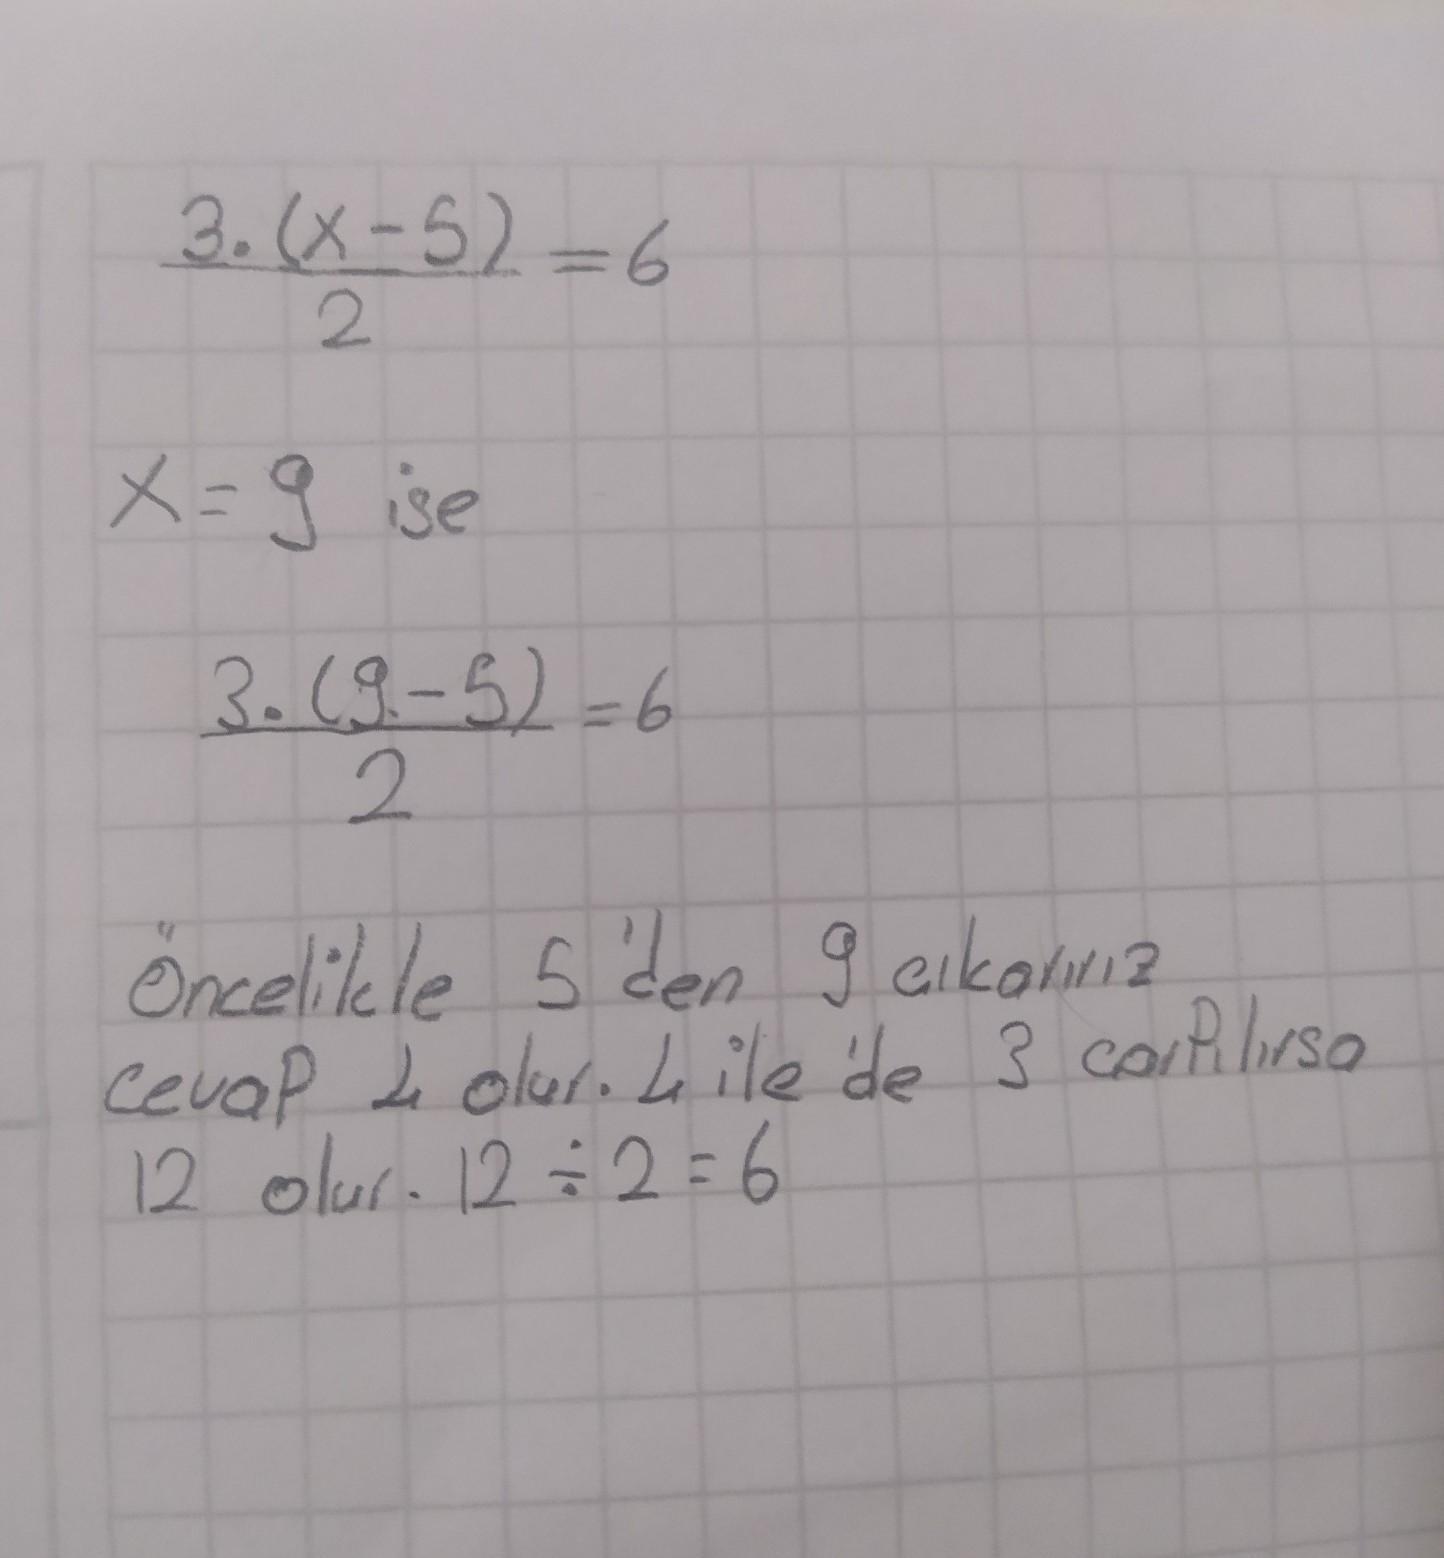 3.(x-5)
2
=6
x=9 ise
3.(9-5)
2
=6
Öncelikle 5'den 9 çıkarırız
cevap 4 olur. 4 ile 'de 3 carpılırsa
12 olur. 12÷2=6